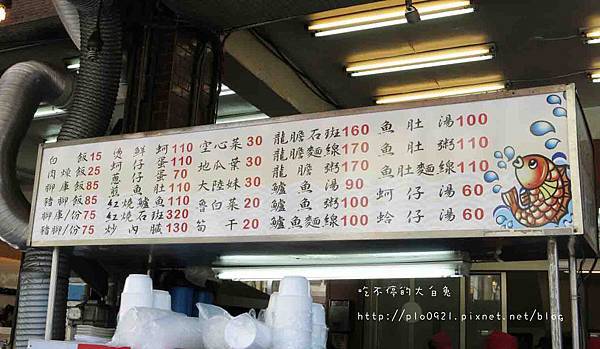 白飯15 燙鮮蚵110 空心菜30 龍膽石斑160 魚肚湯100
肉燥飯25 蚵仔蛋110 地瓜葉30 龍膽麵線170 魚肚粥110
獅庫飯85 蔥仔蛋70 大陸妹30 龍膽粥170 魚肚麵線110
豬腳飯85 煎魚肚110 魯白菜20 鱸魚湯90 蚵仔湯60
獅庫/份75 紅燒鱸魚 筍干20 鱸魚粥100 蛤仔湯60
豬腳/份75 紅燒石斑320 鱸魚麵線100
炒內臟130
吃不停的大白兔
http://plo0921.pixnet.net/blog